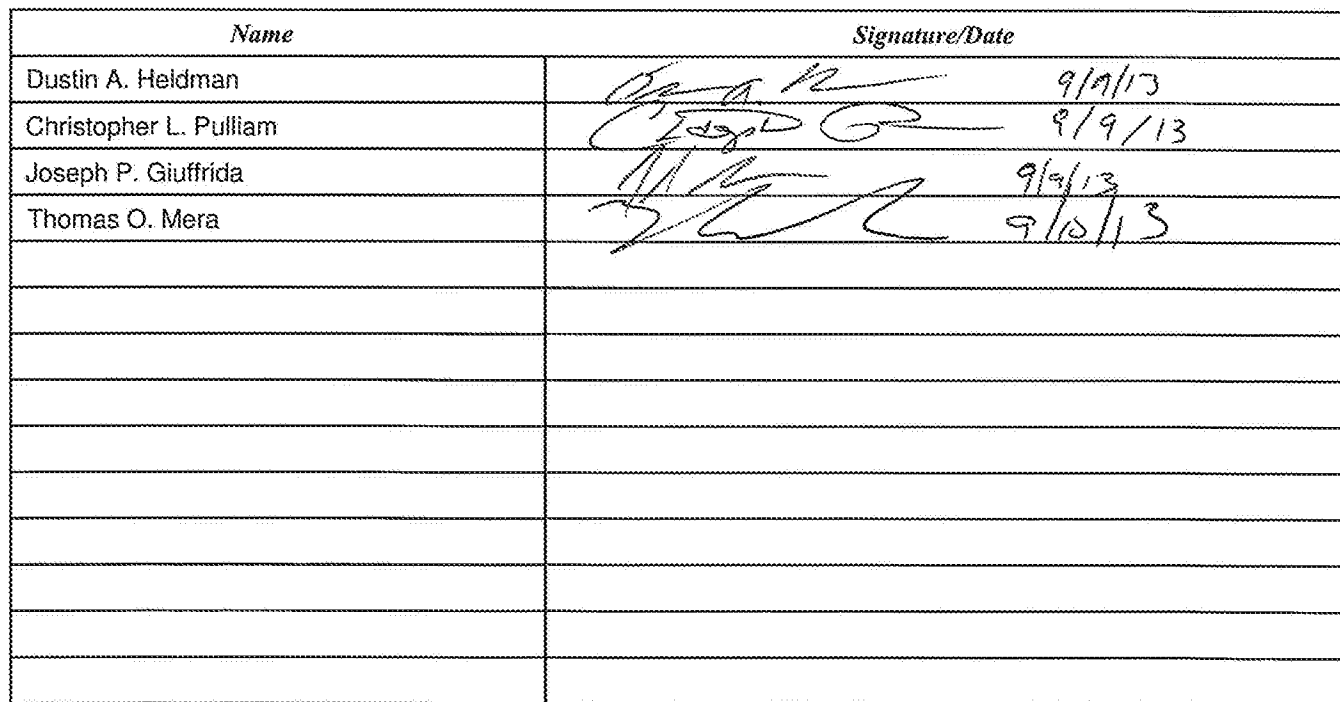 Name Signature/Date
Dustin A. Heldman 9/9/13
Christopher L. Pulliam 9/9/13
Joseph P. Giuffrida 9/9/13
Thomas O. Mera 9/10/13